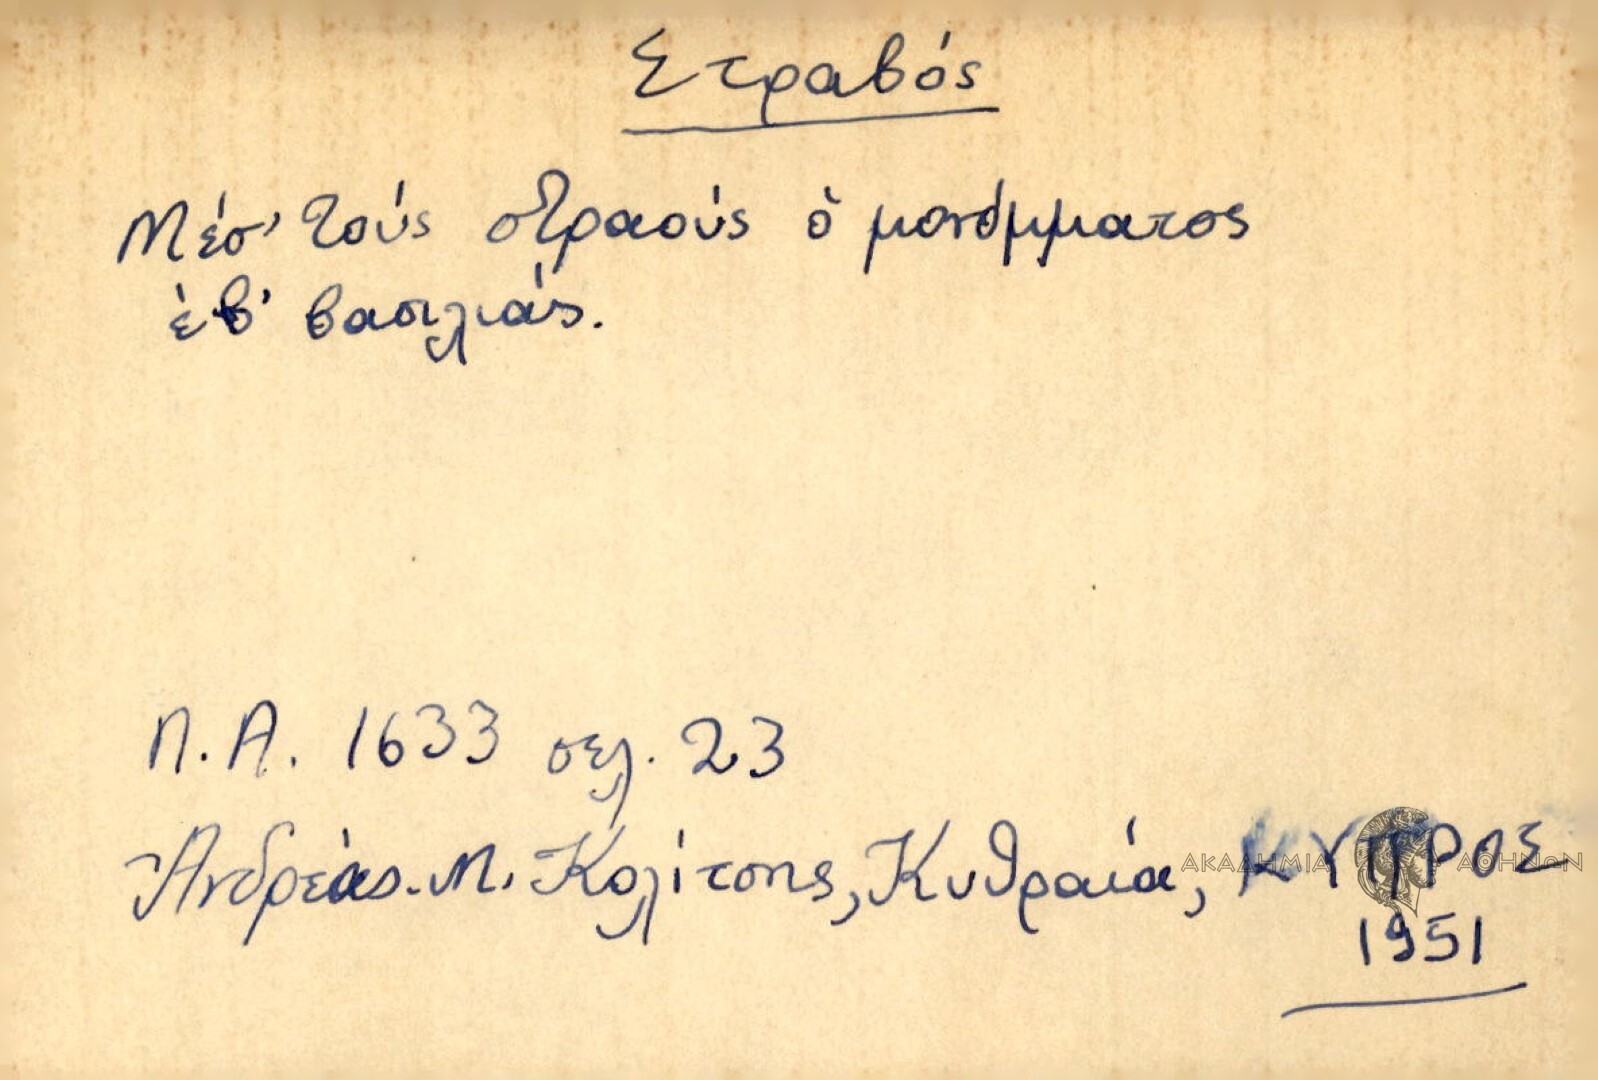 Στραβός
Μέσ' τούς στραούς ὁ μονόμματος
ἐβ' βασιλιάς.
Π.Α. 1633 σελ. 23
Ἀνδρέας. Μ. Κολίτσης, Κυθραία, ΚΥΠΡΟΣ
ΑΚΑΔΗΜΙΑ ΑΘΗΝΩΝ
1951